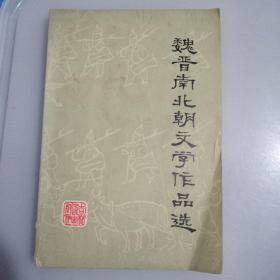 魏晋南北朝文学作品选